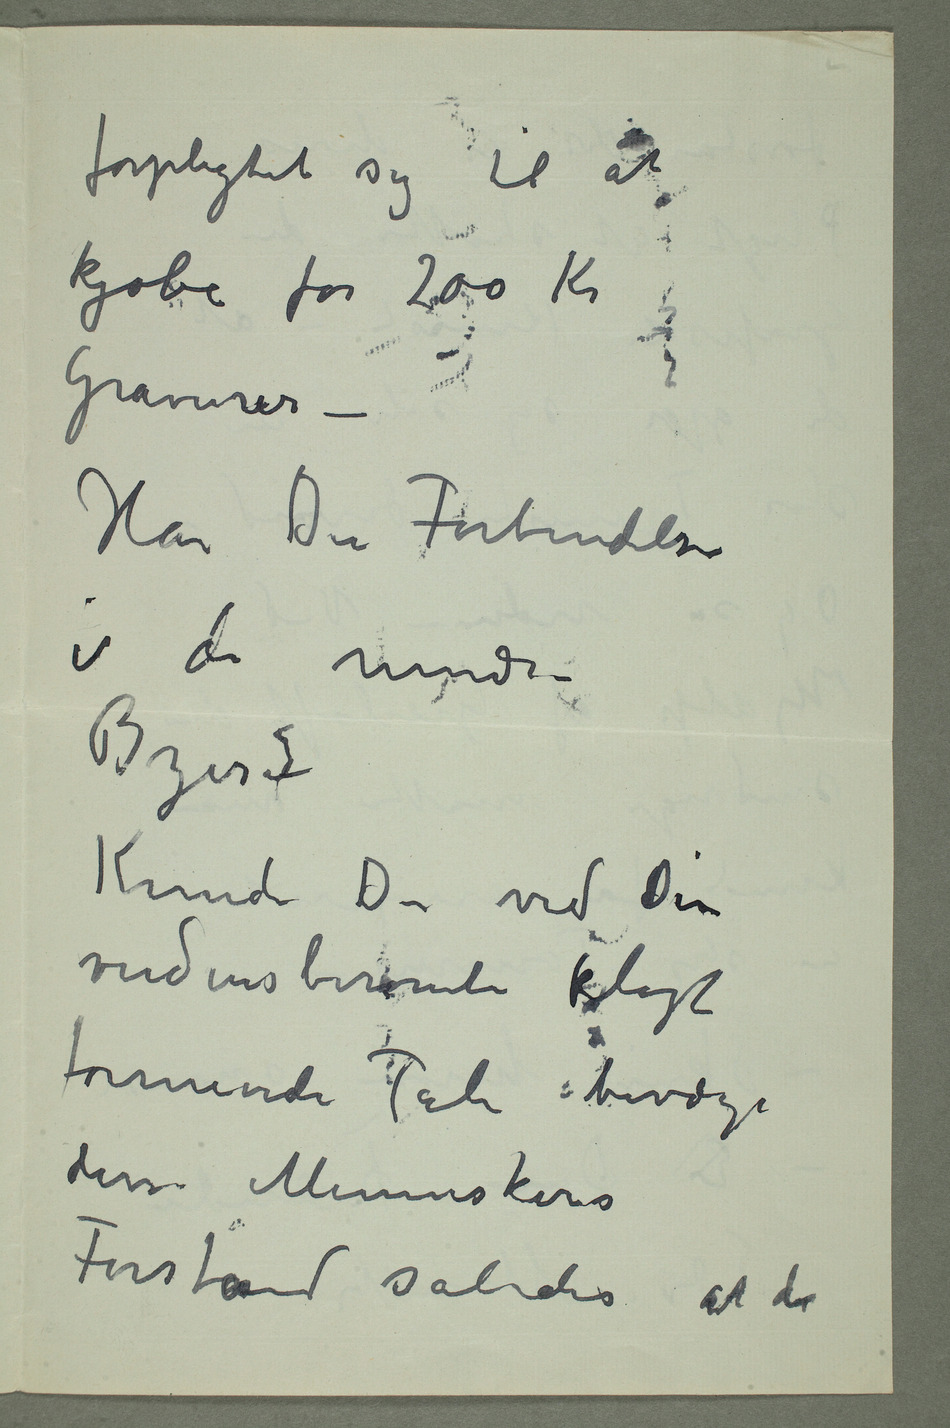 forpligtet sig til at
kjøbe for 200 Kr
Gravurer –
Har Du Forbindelse
i de mindre
Byer?
Kunde Du ved Din
verdensberømte klogt
formende Tale bevæge
disse Menneskers
Forstand således at de